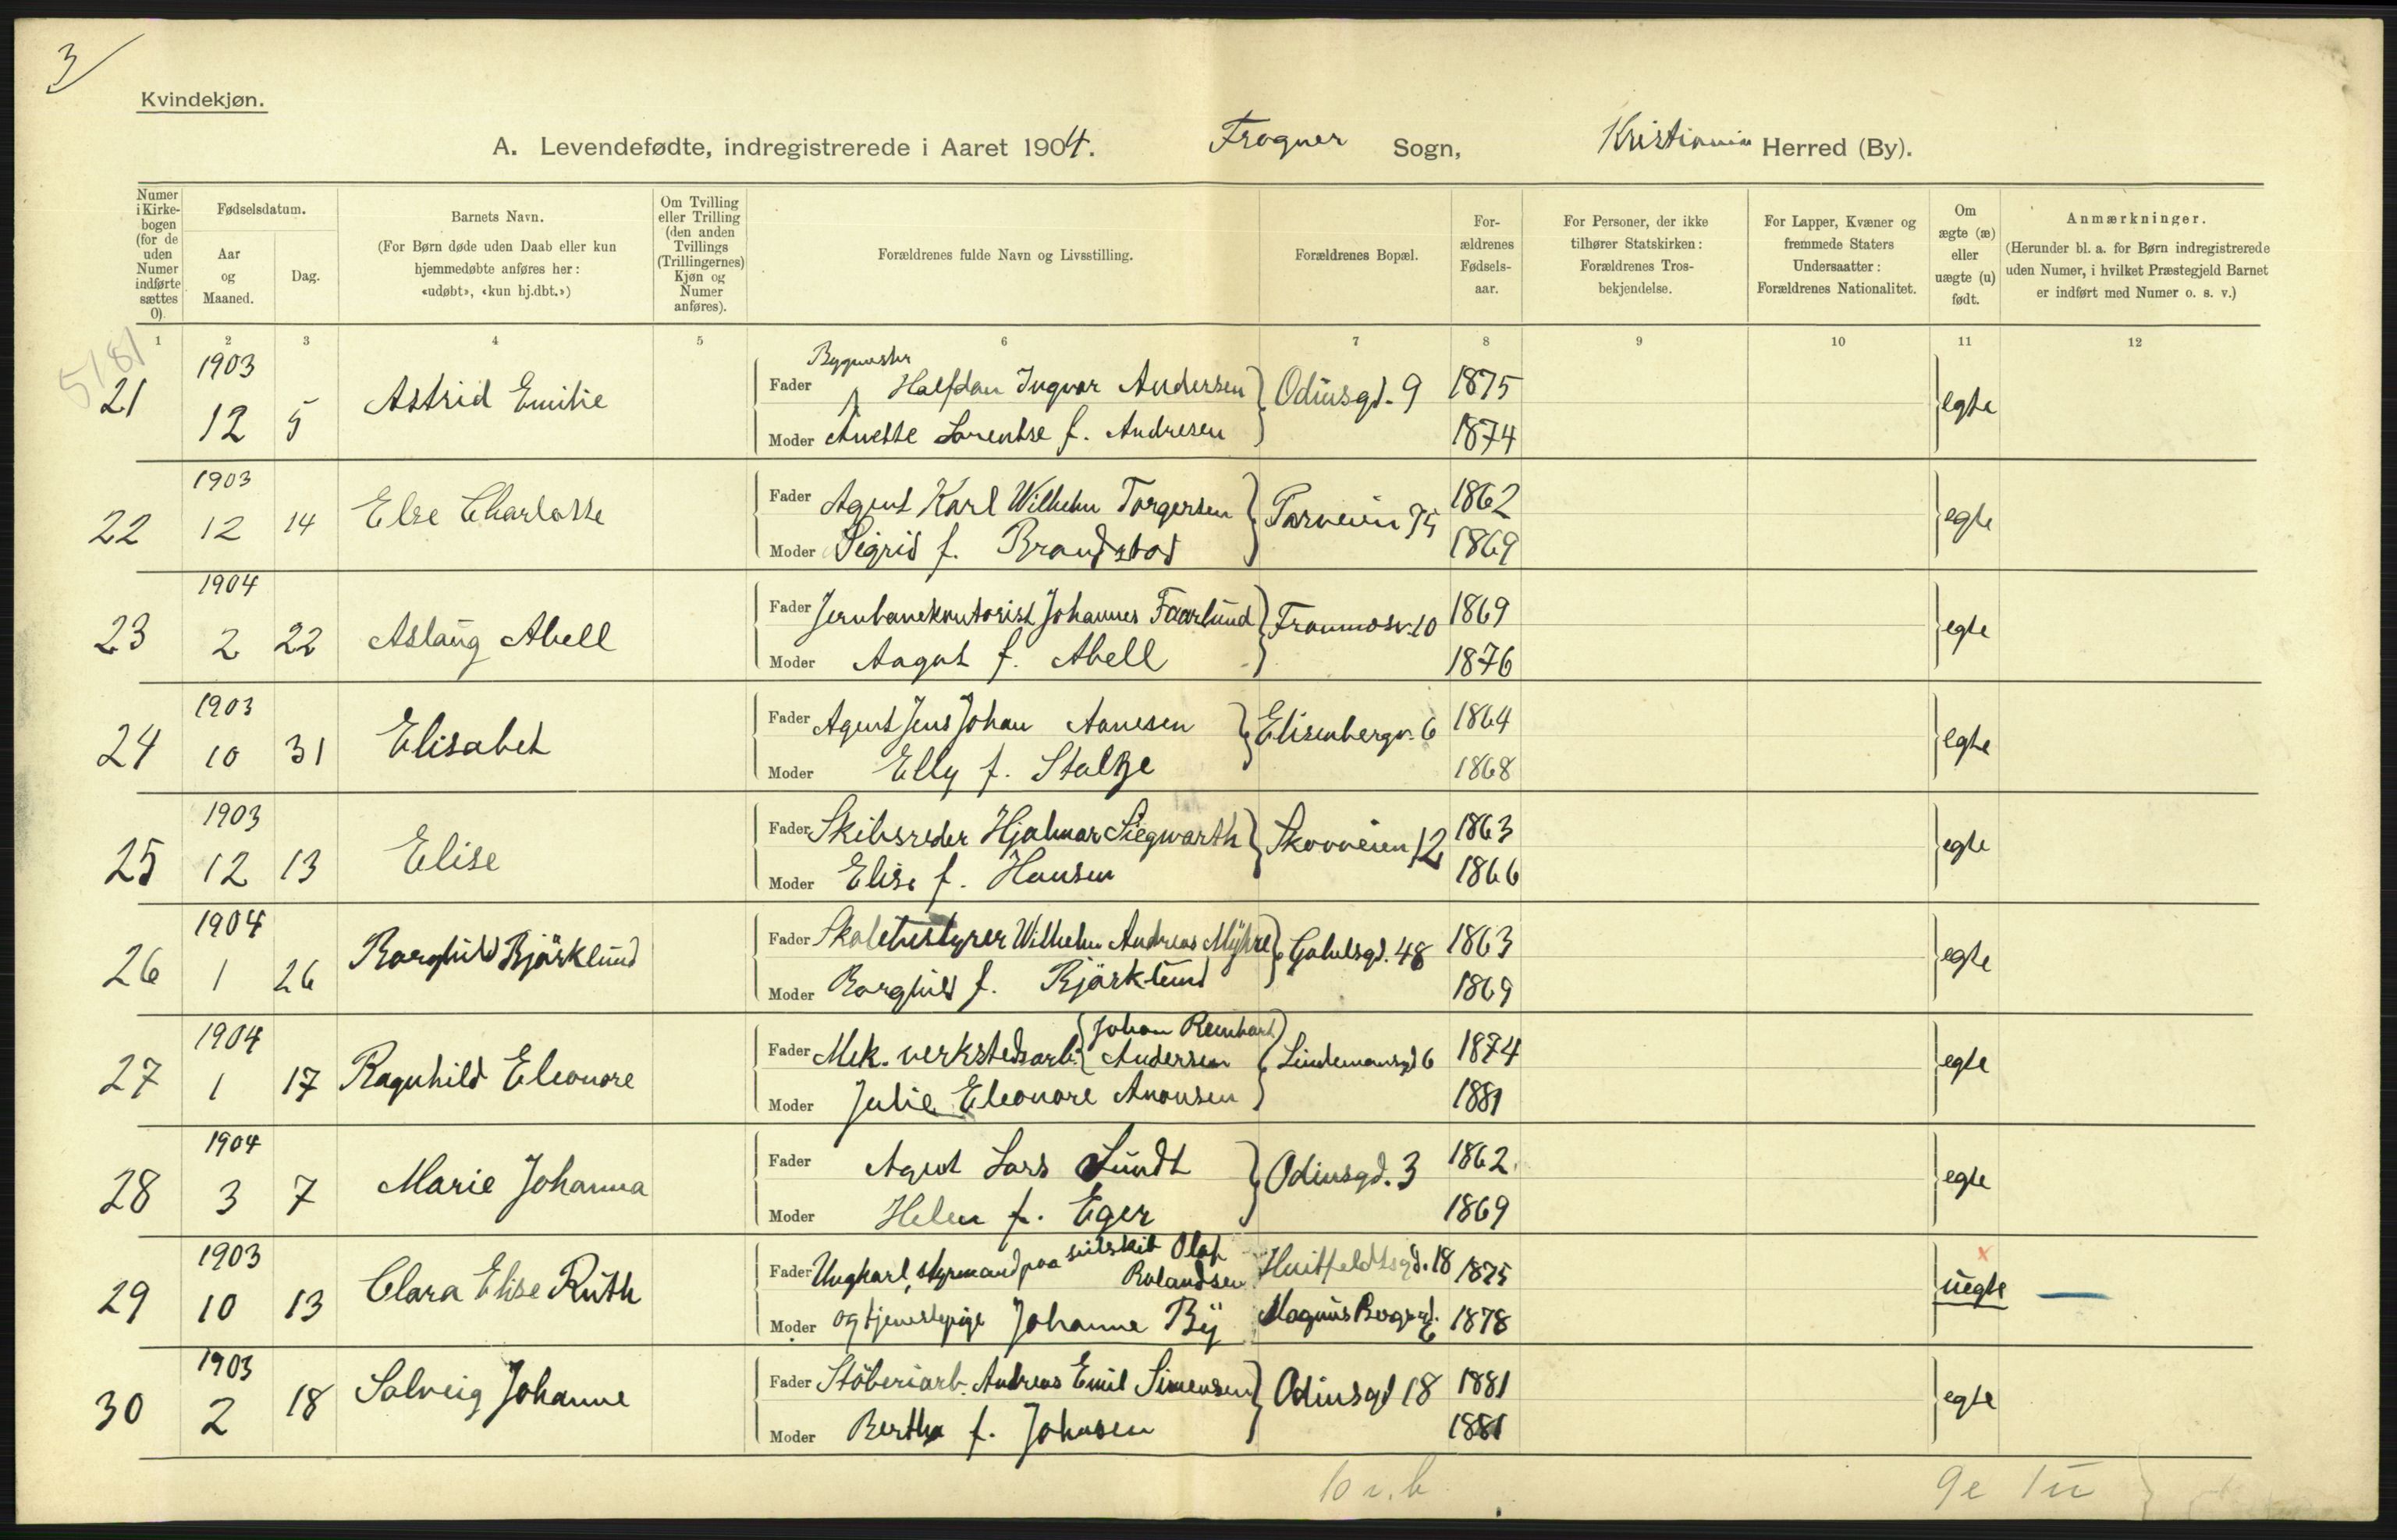 3
Kvindekjøn.
A. Levendefødte, indregistrerede i Aaret 1904. Frogner Sogn, Kristiania Herred (By).
Numer i Kirkebogen (for de uden Numer indførte sættes 0).
Fødselsdatum.
Aar og Maaned.
Dag.
Barnets Navn.
(For Børn døde uden Daab eller kun hjemmedøbte anføres her: «udøbt», «kun hj.dbt.»)
Om Tvilling eller Trilling (den anden Tvillings (Trillingernes) Kjøn og Numer anføres).
Forældrenes fulde Navn og Livsstilling.
Forældrenes Bopæl.
Forældrenes Fødselsaar.
For Personer, der ikke tilhører Statskirken: Forældrenes Trosbekjendelse.
For Lapper, Kvæner og fremmede Staters Undersaatter: Forældrenes Nationalitet.
Om ægte (æ) eller uægte (u) født.
Anmærkninger.
(Herunder bl. a. for Børn indregistrerede uden Numer, i hvilket Præstegjeld Barnet er indført med Numer o. s. v.)
1 2 3 4 5 6 7 8 9 10 11 12
5181
21 1903 12 5 Astrid Emilie Fader Bygmestr Halfdan Ingvar Andersen Odinsgd. 9 1875 egte
Moder Anette Lorentse f. Andresen 1874
22 1903 12 14 Else Charlotte Fader Agent Karl Wilhelm Torgersen 1862 egte
Moder Sigrid f. Brandstod 1869
23 1904 2 22 Aslaug Abell Fader Jernbanekontorist Johannes Faarlund 10 1869 egte
Moder Aagot f. Abell 1876
24 1903 10 31 Elisabet Fader Agent Jens Johan Aanesen Elisenbergv. 6 1864 egte
Moder Elly f. 1868
25 1903 12 13 Elise Fader Skibsreder Hjalmar Siegwarth Skovveien 12 1863 egte
Moder Elise f. Hansen 1866
26 1904 1 26 Borghild Bjørklund Fader Skolebestyrer Wilhelm Andreas Myhre Gabelsgd. 48 1863 egte
Moder Borghild f. Bjørklund 1869
27 1904 1 17 Ragnhild Eleonore Fader Mek. verkstedsarb. Johan Reinhard Andersen Lindemansgd 6 1874 egte
Moder Julie Eleonore Amonsen 1881
28 1904 3 7 Marie Johanna Fader Agent Lars Sundt Odinsgd. 3 1862 egte
Moder Helen f. Eger 1869
29 1903 10 13 Clara Elise Ruth Fader Ungkarl, styrmand paa seilskib Olaf Rolandsen Huitfeldtsgd. 18 1875 uegte
Moder og tjenestepige Johanne By Magnus Bergsgd. 6 1878
30 1903 2 18 Solveig Johanne Fader Støberiarb. Andreas Emil Simensen Odinsgd 18 1881 egte
Moder Bertha f. Johnsen 1881
9e 1u